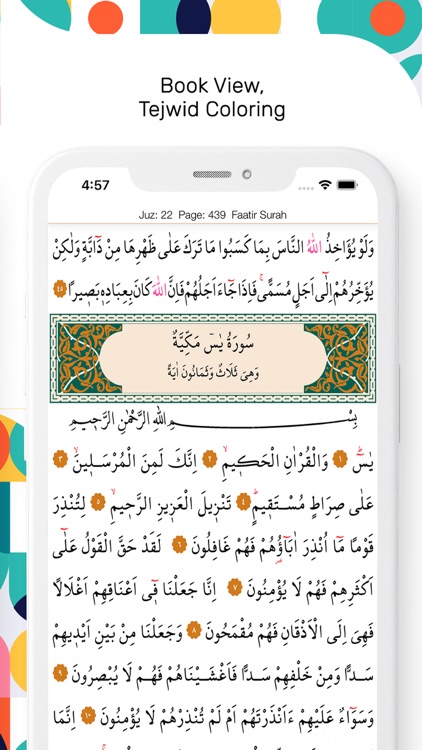 Book View,
Tejwid Coloring
4:57
Juz: 22 Page: 439 Faatir Surah
وَلَوْ يُؤَاخِذُ اللّٰهُ النَّاسَ بِمَا كَسَبُوا مَا تَرَكَ عَلٰى ظَهْرِهَا مِنْ دَٓابَّةٍ وَلٰكِنْ
يُؤَخِّرُهُمْ اِلٰٓى اَجَلٍ مُسَمًّىۚ فَاِذَا جَٓاءَ اَجَلُهُمْ فَاِنَّ اللّٰهَ كَانَ بِعِبَادِه۪ بَص۪يرًا ٤٥
سُورَةُ يٰسٓ مَكِّيَّةٌ
وَهِىَ ثَلَاثٌ وَثَمَانُونَ اٰيَةً
بِسْمِ اللّٰهِ الرَّحْمٰنِ الرَّح۪يمِ
يٰسٓۜ ١ وَالْقُرْاٰنِ الْحَك۪يمِۙ ٢ اِنَّكَ لَمِنَ الْمُرْسَل۪ينَۙ ٣
عَلٰى صِرَاطٍ مُسْتَق۪يمٍۜ ٤ تَنْز۪يلَ الْعَز۪يزِ الرَّح۪يمِۙ ٥ لِتُنْذِرَ
قَوْمًا مَٓا اُنْذِرَ اٰبَٓاؤُ۬هُمْ فَهُمْ غَافِلُونَ ٦ لَقَدْ حَقَّ الْقَوْلُ عَلٰٓى
اَكْثَرِهِمْ فَهُمْ لَا يُؤْمِنُونَ ٧ اِنَّا جَعَلْنَا ف۪ٓى اَعْنَاقِهِمْ اَغْلَالًا
فَهِىَ اِلَى الْاَذْقَانِ فَهُمْ مُقْمَحُونَ ٨ وَجَعَلْنَا مِنْ بَيْنِ اَيْد۪يهِمْ
سَدًّا وَمِنْ خَلْفِهِمْ سَدًّا فَاَغْشَيْنَاهُمْ فَهُمْ لَا يُبْصِرُونَ ٩
وَسَوَٓاءٌ عَلَيْهِمْ ءَاَنْذَرْتَهُمْ اَمْ لَمْ تُنْذِرْهُمْ لَا يُؤْمِنُونَ ١٠ اِنَّمَا